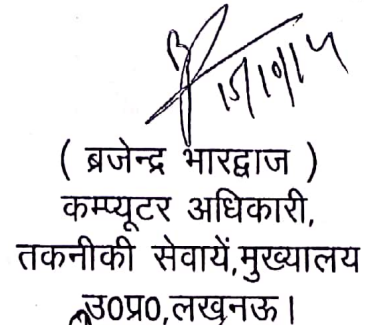 15/10/14
( ब्रजेन्द्र भारद्वाज )
कम्प्यूटर अधिकारी,
तकनीकी सेवायें,मुख्यालय
उ0प्र0,लखनऊ।